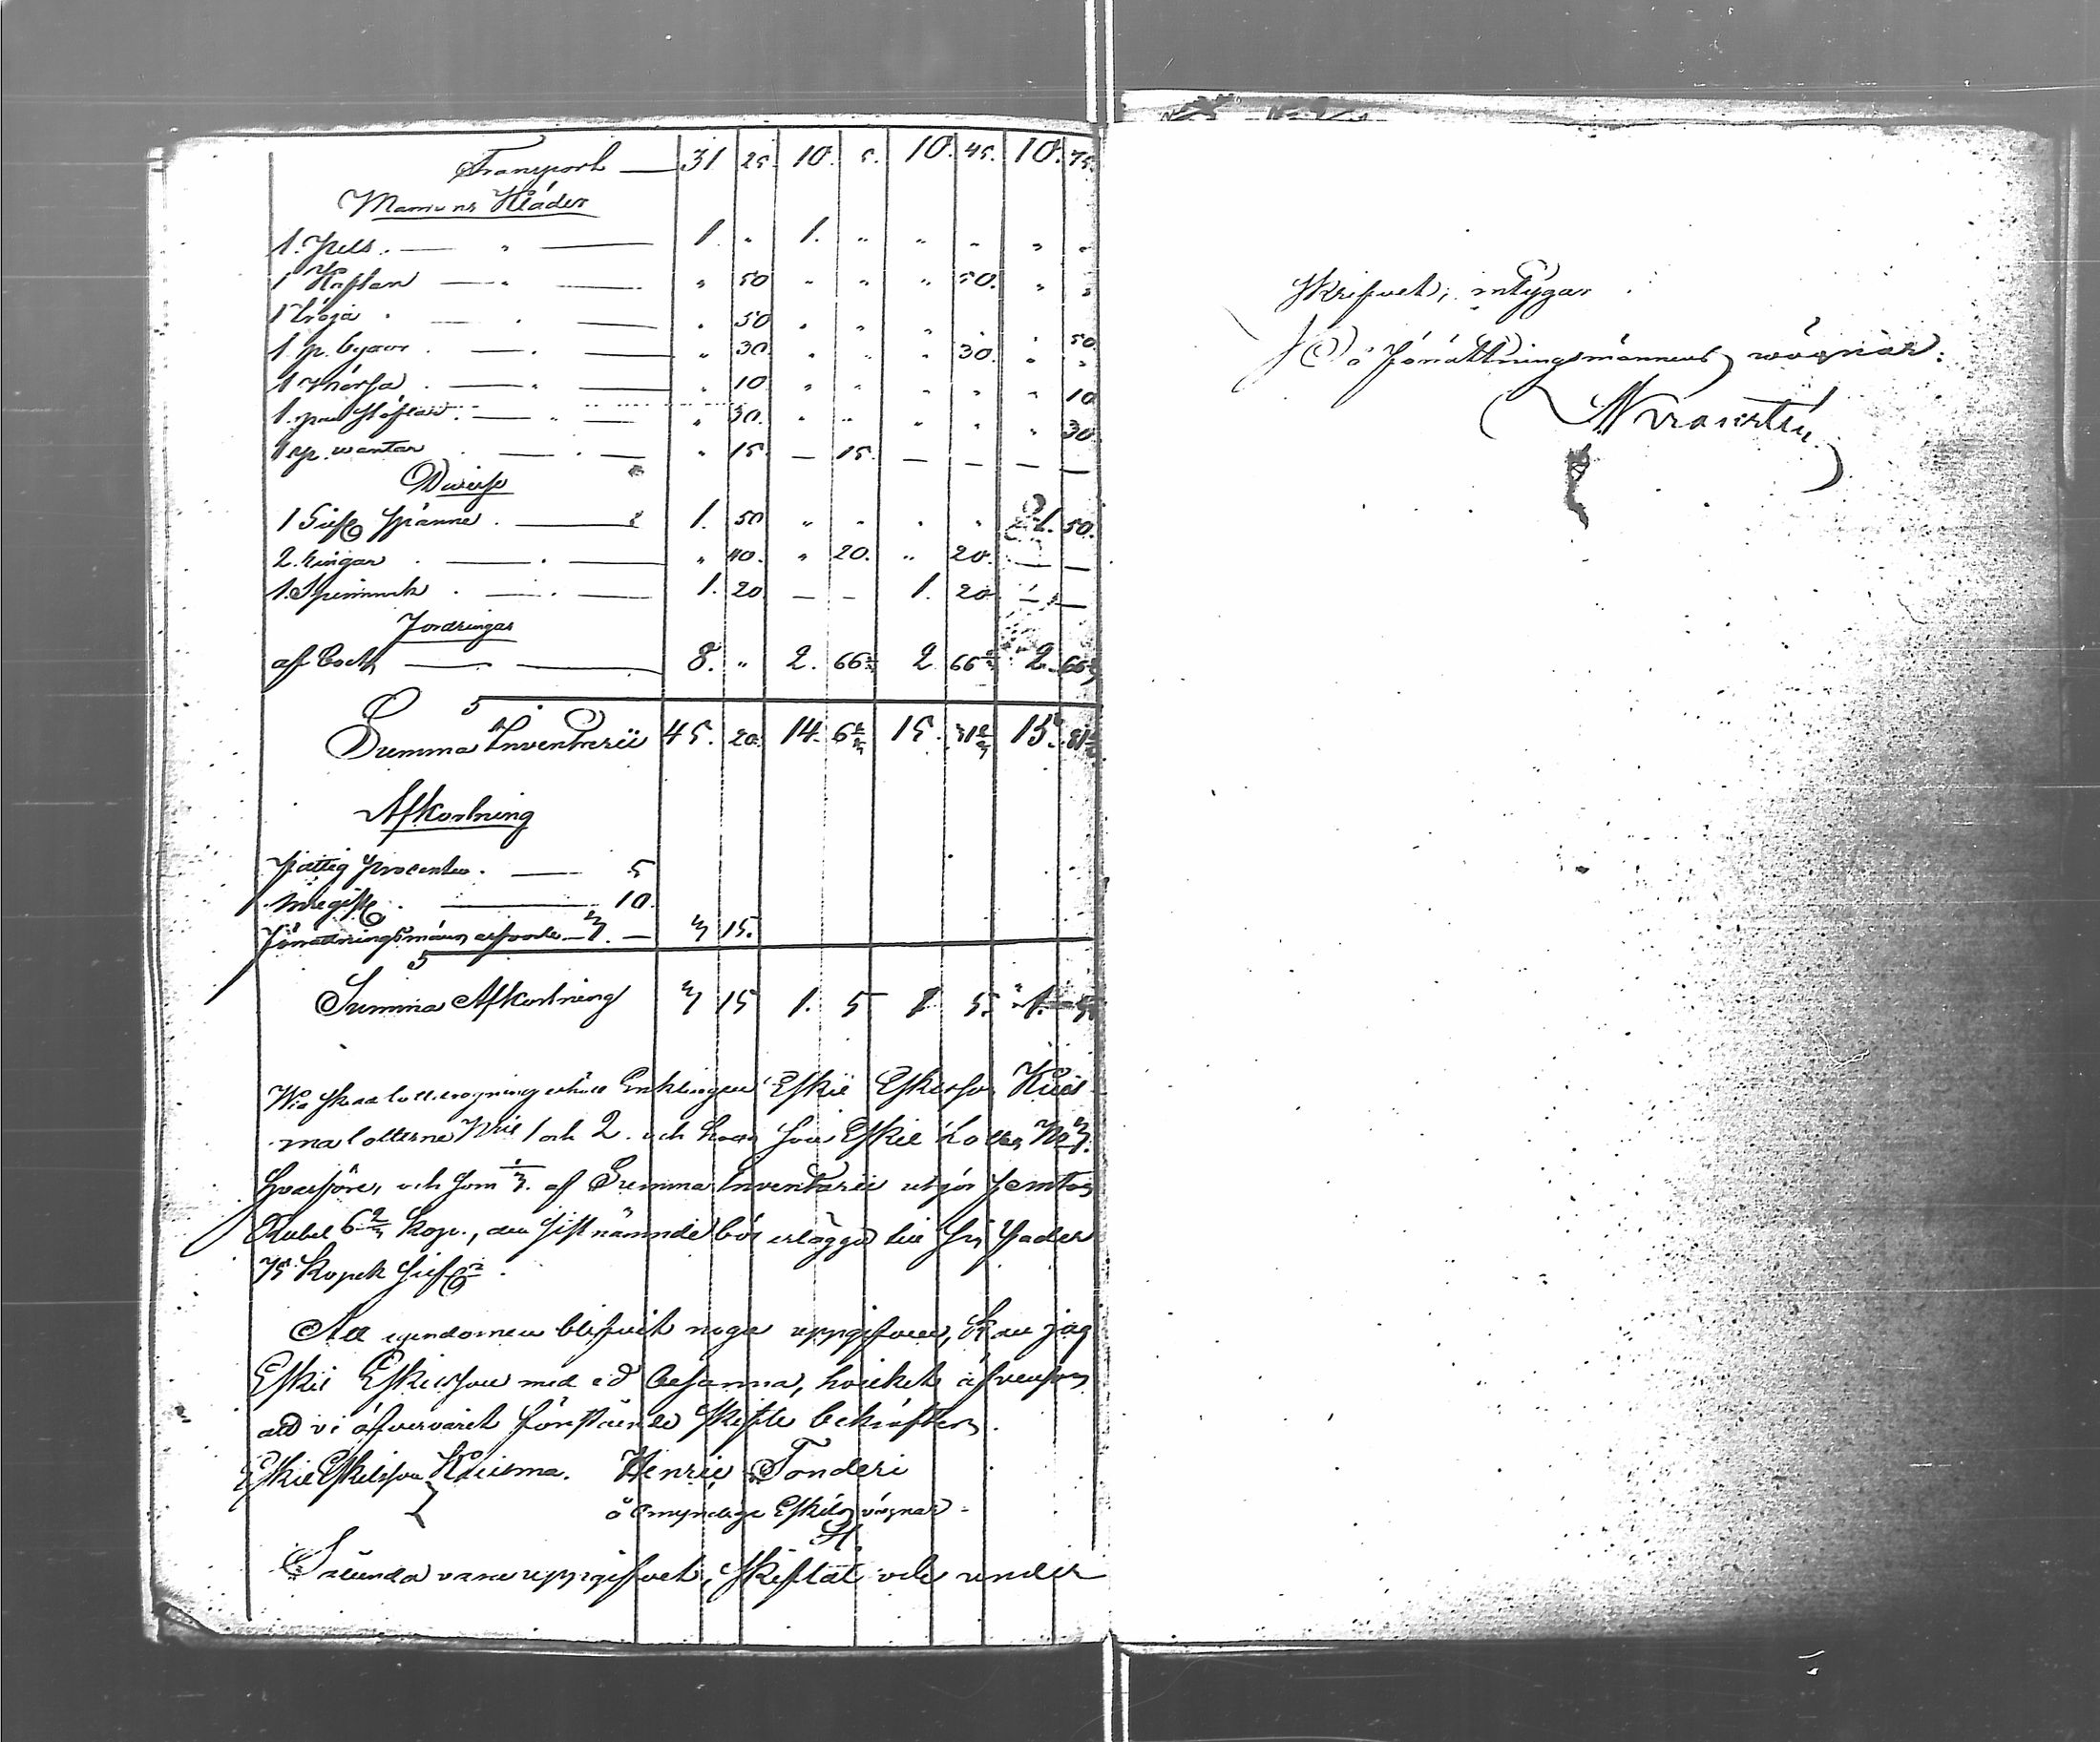 Transport — 31 25. 10. 5. 10. 45. 10. 75.
Mannens Kläder
1. Pels. — " — 1. " 1. " " " " "
1 Kaftan — " — " 50 " " " 50. " "
1 tröja . — " 50 " " " " " 50.
1 p. byxor . — " 30. " " " 30. " "
1 mössa . — " 10 " " " " " 10
1. par stöflar . — " 30. " " " " " 30.
1 p. wantar . — " 15. — 15. — — — —
Diverse
1 Silf spänne . — 1. 50 " " " " 1. 50.
2. ringar . — " 40. " 20. " 20. — —
1. Spinnrock . — 1. 20 — — 1. 20 — —
Fordringar
af Boet — 8. " 2. 66⅔ 2 66⅔ 2. 66⅔
Summa Inventarii 45. 20. 14. 6⅔ 15. 31⅔ 15. 81⅔
Afkortning
fattig procenten . — 5
. — 10.
Förrättningsmäns arfvode — 3. — 3 15.
Summa Afkortning 3 15 1. 5 1 5. 1. 5
Wid skedd lottdragning erhöll Enklingen Eskil Eskilsson Kuis-
ma lotterne N:ris 1 och 2. och hans son Eskil Lotten No 3.
hvarföre, och som ⅓. af Summa Inventarii utgör femton
Rubel 6⅔ kop., den sistnämnde bör erlägga till sin fader
75 kopek Silf.
Att egendomen blifvit noga uppgifven, kan jag
Eskil Eskilsson med ed besanna, hvilket äfvensom
att vi öfvervarit förestående skifte bekräftas.
Eskil Eskilsson Kuisma. Henric Tonderi
å omyndige Eskils vägnar.
Sålunda vara uppgifvet, skiftat och under
skrifvet, intygar
å förrättningsmännens wägnar: